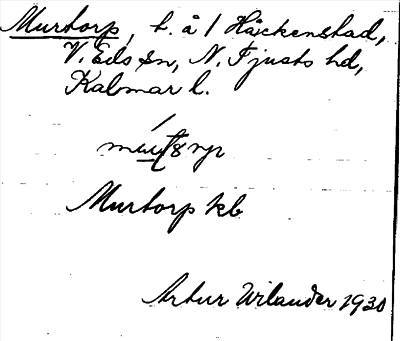 Murtorp, t. å 1 Häckenstad,
V. Eds sn, N. Tjusts hd,
Kalmar l.
Murtorp kb
Artur Wilander 1930